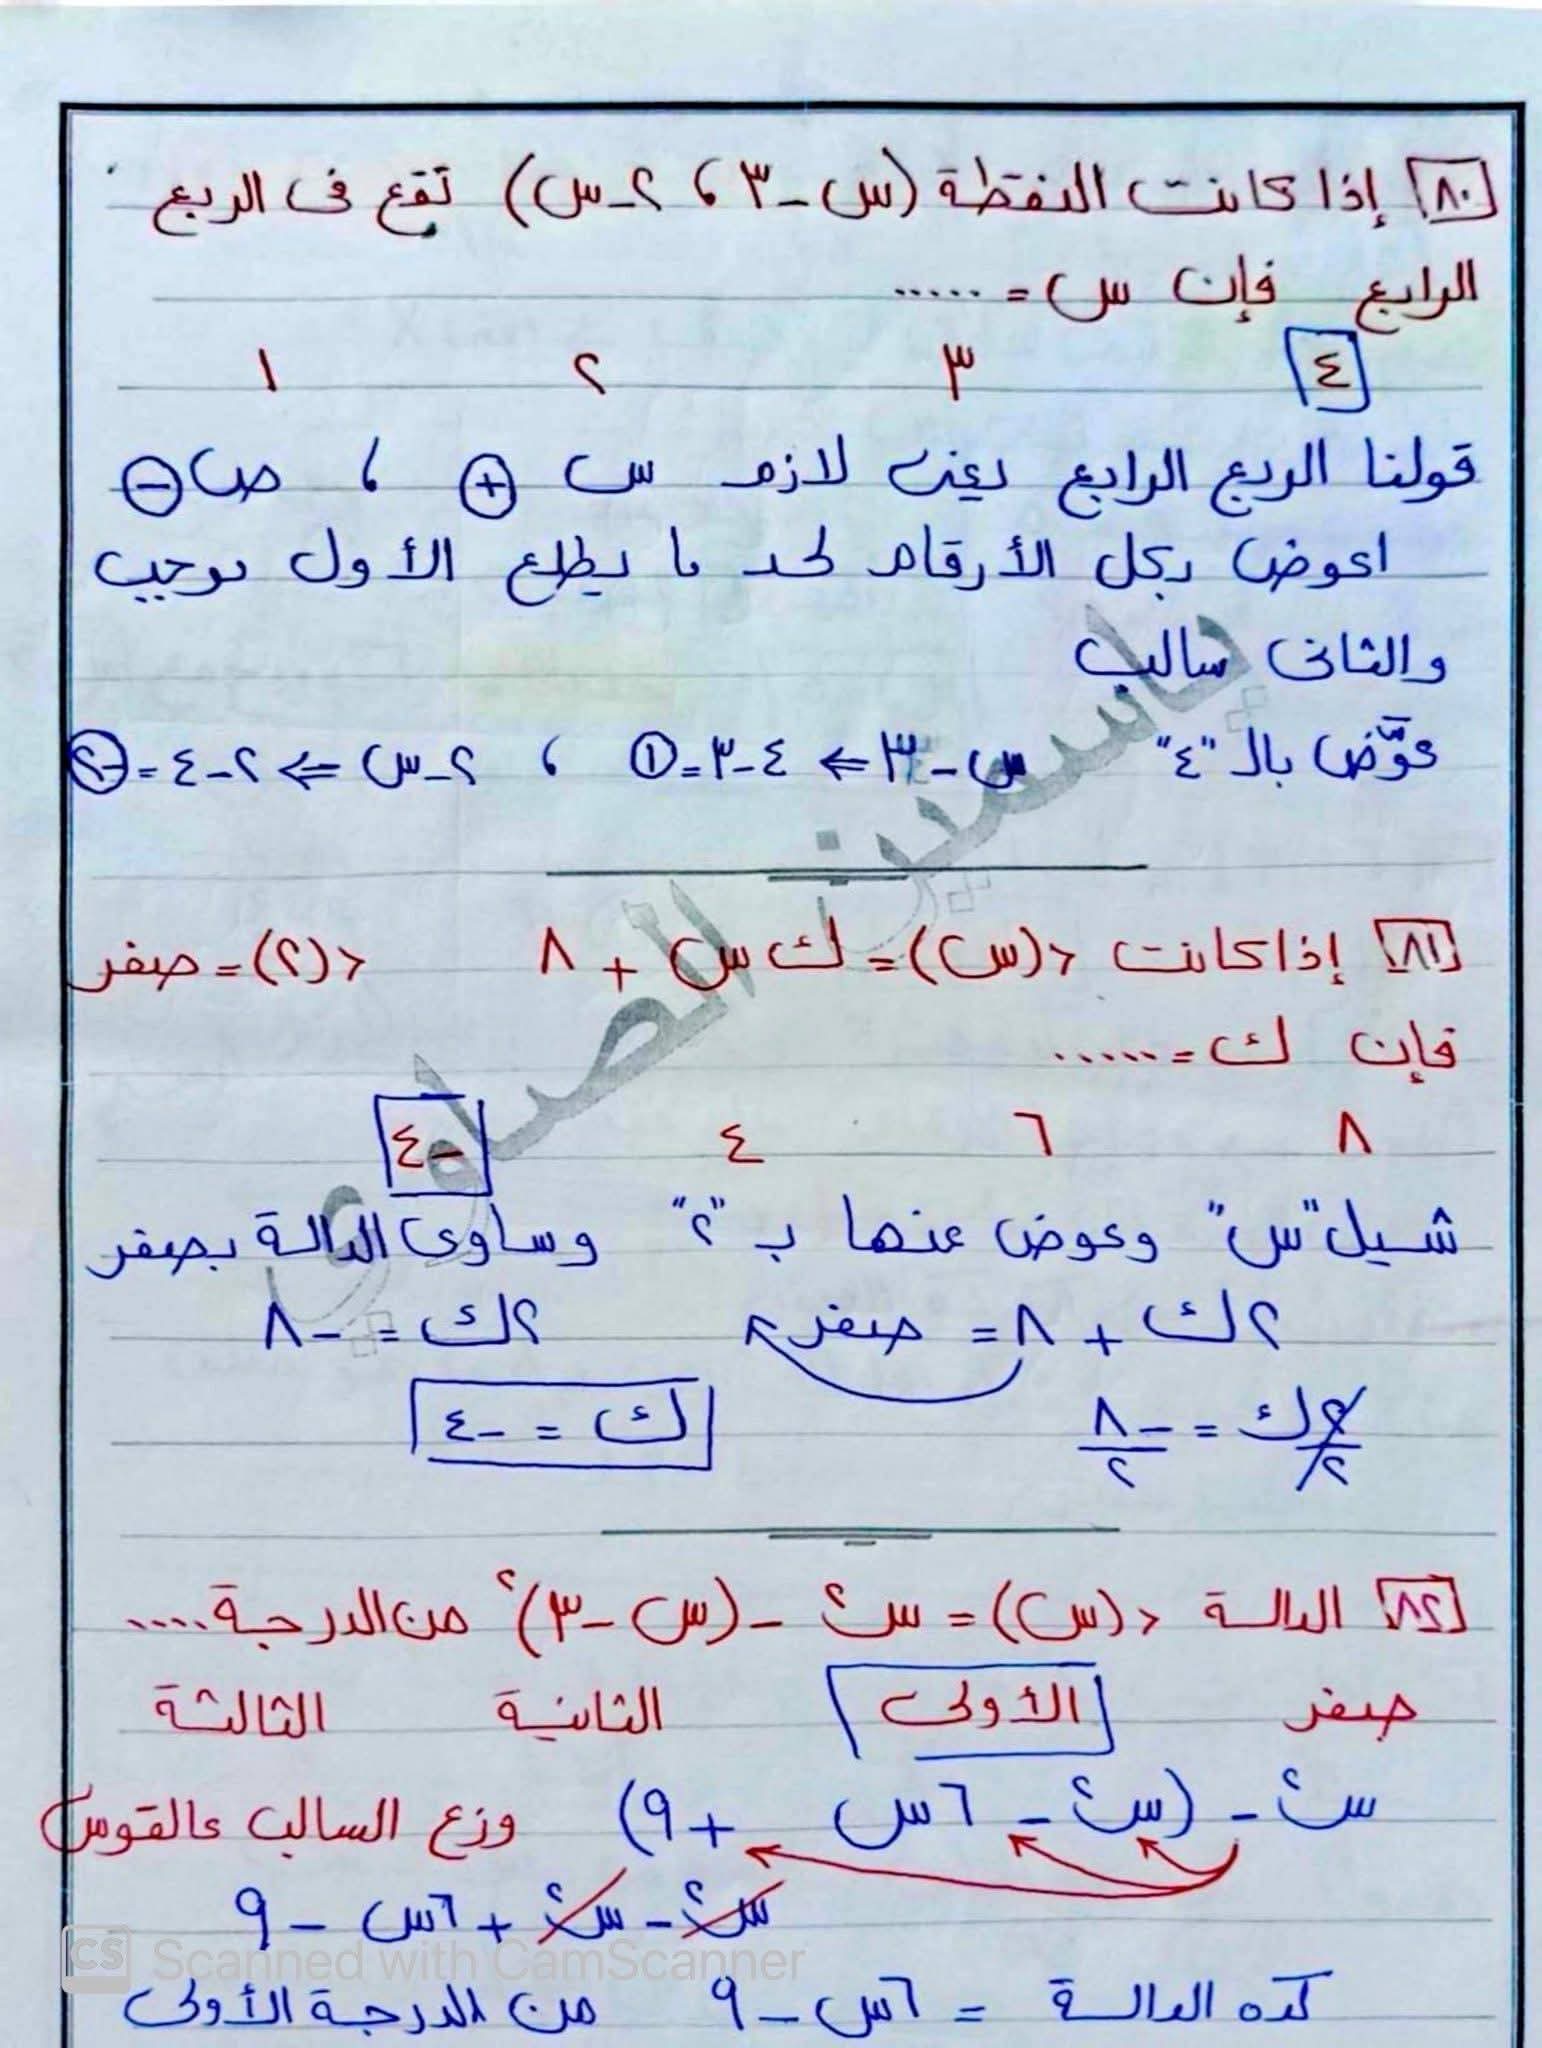 ٨٠ إذا كانت النقطة (س - ٣ ، ٢ - س) تقع فى الربع
الرابع فإن س = .....
٤ ٣ ٢ ١
قولنا الربع الرابع يعنى لازم س + ، ص -
اعوض بكل الأرقام لحد ما يطلع الأول موجب
والثانى سالب
عوّض بالـ "٤" س - ٣ ⇐ ٤ - ٣ = ١ ، ٢ - س ⇐ ٢ - ٤ = -٢
ياسمين الصاوى
٨١ إذا كانت د(س) = ك س + ٨ د(٢) = صفر
فإن ك = ......
٨ ٦ ٤ -٤
شيل "س" وعوض عنها ب "٢" وساوى الدالة بصفر
٢ك + ٨ = صفر ٢ك = -٨
٢ك/٢ = -٨/٢ ك = -٤
٨٢ الدالة د(س) = س² - (س - ٣)² من الدرجة ....
صفر الأولى الثانية الثالثة
س² - (س² - ٦س + ٩) وزع السالب عالقوس
س² - س² + ٦س - ٩
كده الدالة = ٦س - ٩ من الدرجة الأولى
CS Scanned with CamScanner